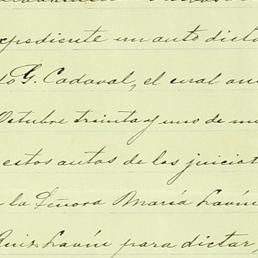 expediente un auto dicta
do G. Cadaval, el cual an
Octubre treinta y uno de m
estos autos de los juicios
la Señora María Lavín
Luis Lavín para dictar